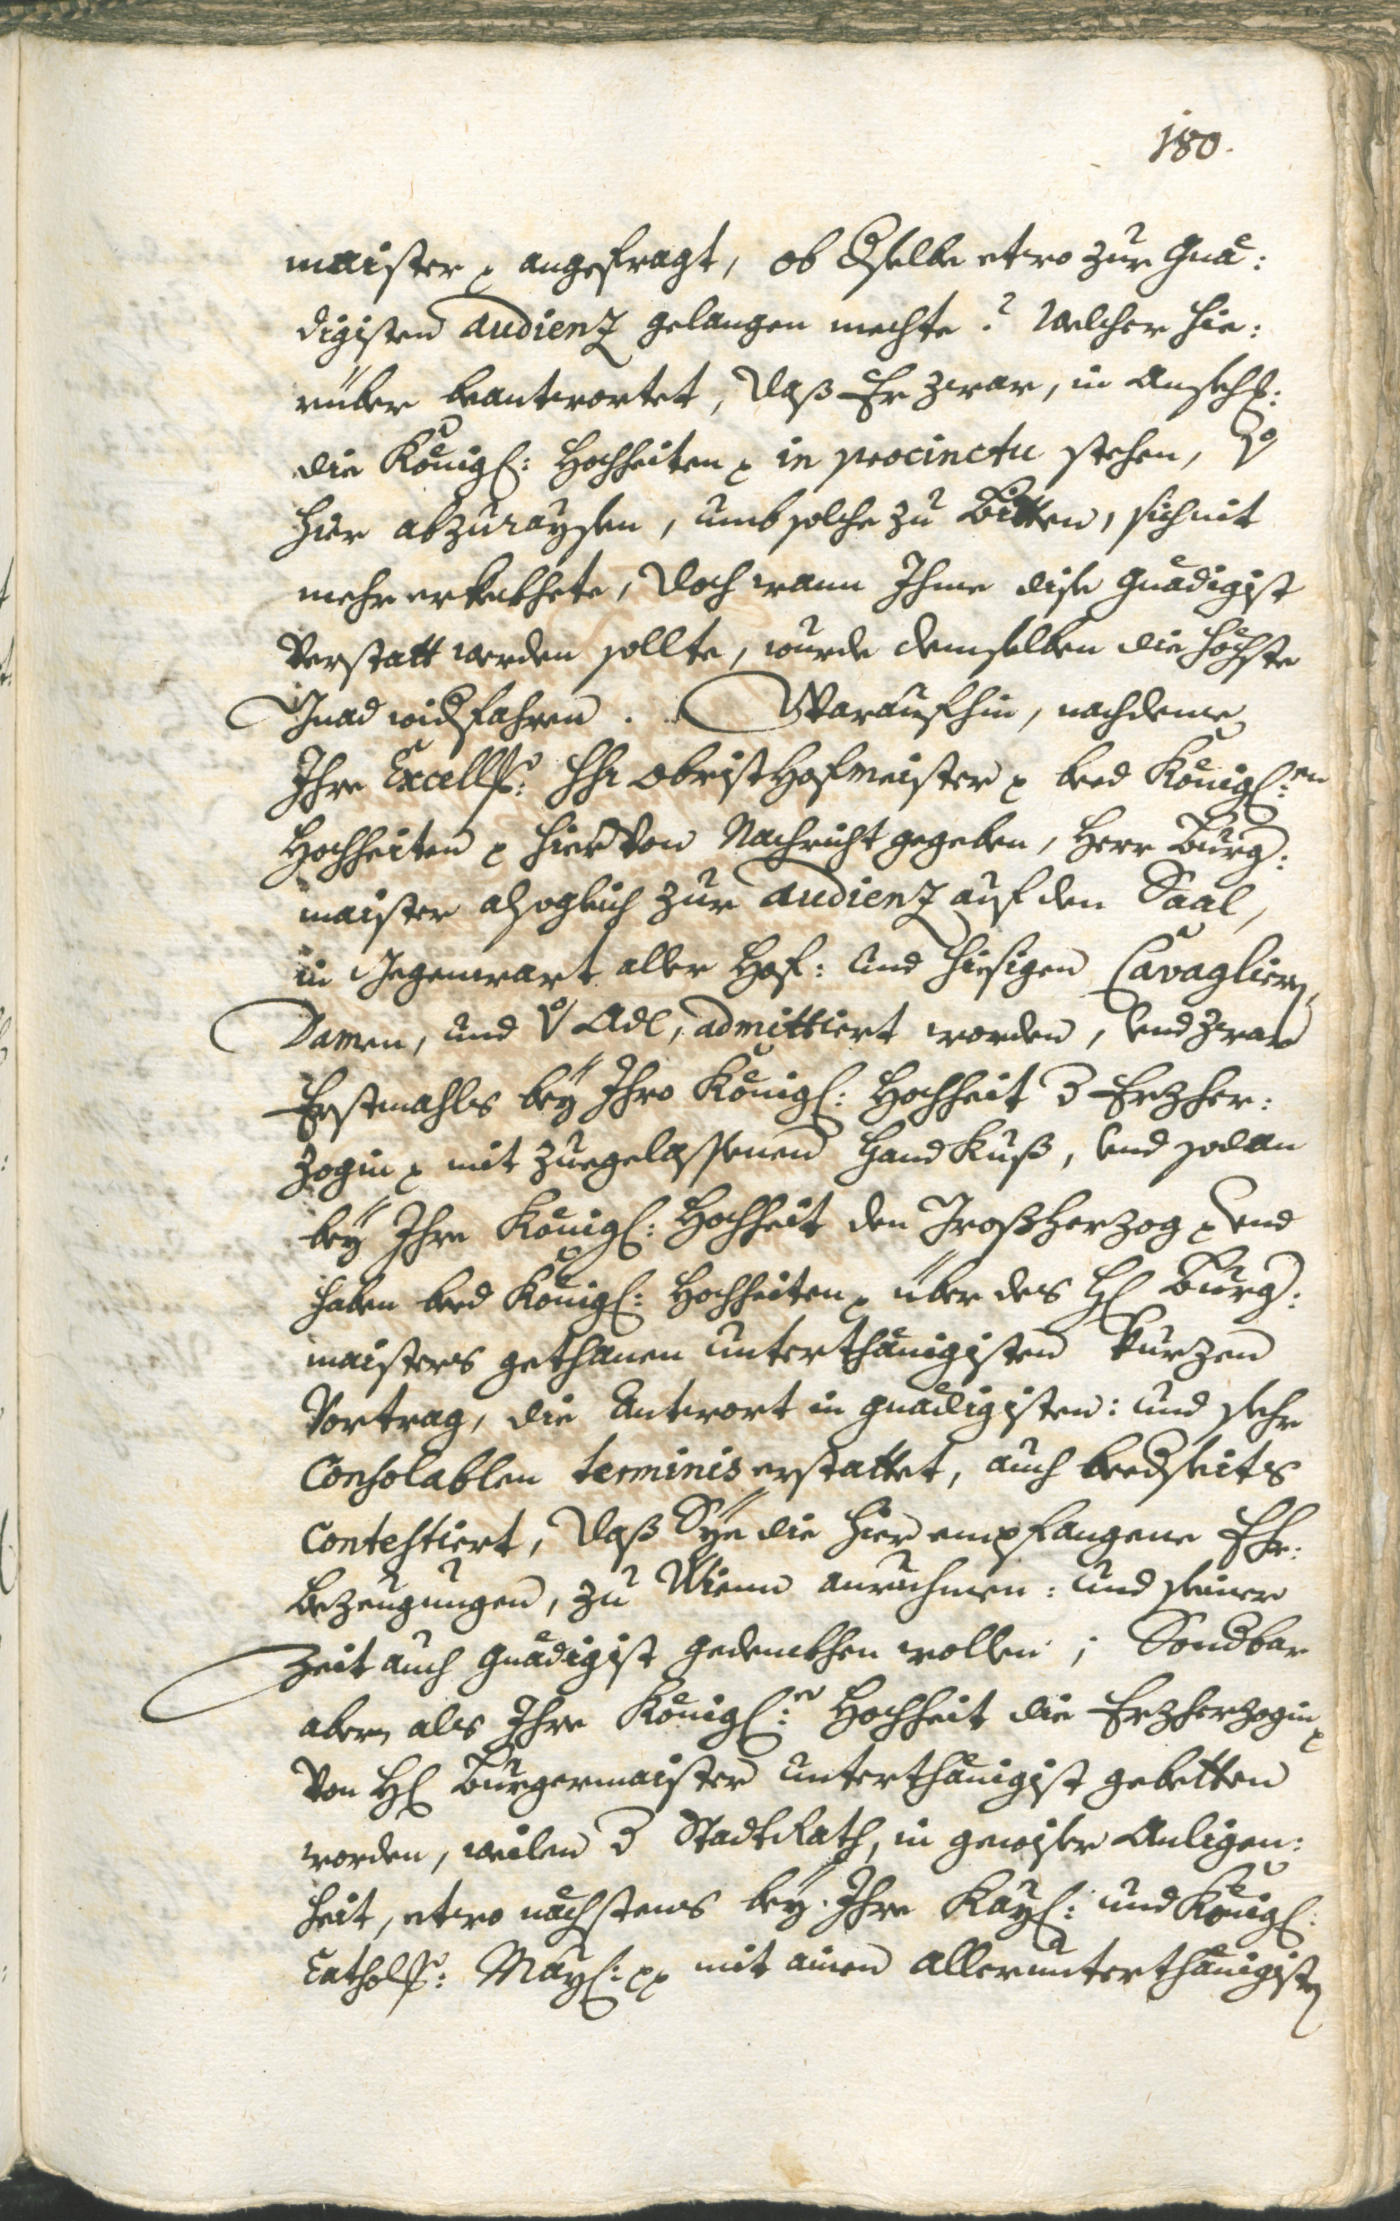 180.
maister p angefragt, ob dselbe etwo zur Gnä:
digisten audienz gelangen mechte? Welcher hie:
rüber beantwortet, daß Er zwar, in Ansech:
die Königl: Hochheiten p in procinctu stehen, von
hier abzuraysen, umb solche zu Bitten, sich nit
mehr erkekhete, doch wann Ihme dise gnädigist
Verstatt werden sollte, wurde demselben die höchste
Gnad widfahren. Warauf hin, nachdeme
Ihre Excell: HHr Obrist Hofmeister p beed Königl:en
Hochheiten p hieruon Nachricht gegeben, Herr Burg:
maister alsogleich zur audienz auf den Saal,
in Gegenwart aller Hof: und hiesigen Cavaglieren,
Damen, und V Adl, admittiert worden, und zwar
Erstmahls bey Ihro Königl: Hochheit d Erzher:
zogin p mit zuegelassenen Hand Kuß, und sodan
bey Ihre Königl: Hochheit den Großherzog p und
haben beed Königl: Hochheiten p über des H: Burg:
maisters gethanen unterthänigisten kurzen
Vortrag, die Antwort in gnädigisten: und sehr
Consolablen terminis erstattet, auch beedseits
Contestiert, daß Sye die hier empfangene Ehr:
bezeugungen, zu Wienn anrüehmen: und seiner
Zeit auch gnädigist gedenkhen wollen; Sondbar
aber, als Ihre Königl:e Hochheit die Erzherzogin p
Von H: Burgermaister unterthänigist gebetten
worden, weilen d Stadt Rath, in gewiser Anligen:
heit, etwo nächstens bey Ihre Kayl: und Königl:
Cathol: May: pp mit ainen allerunterthänigisten